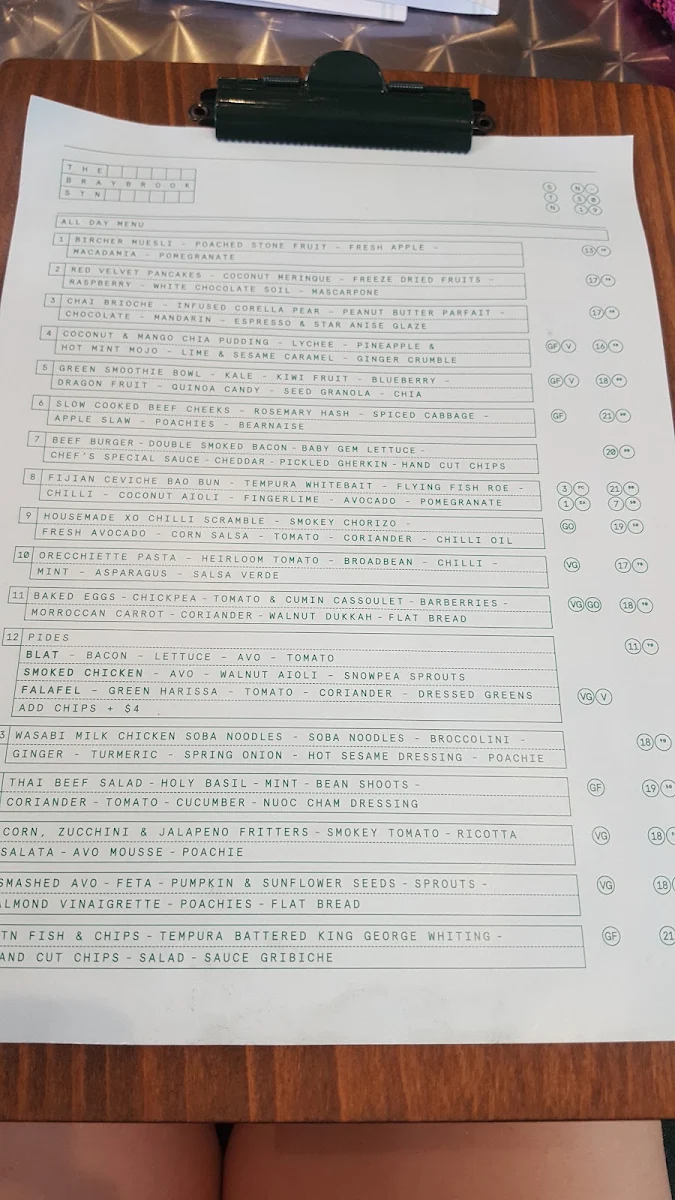 THE
BRAYBROOK
STN
S N-
T 30
N 19
ALL DAY MENU
1 BIRCHER MUESLI - POACHED STONE FRUIT - FRESH APPLE - 13
MACADAMIA - POMEGRANATE
2 RED VELVET PANCAKES - COCONUT MERINQUE - FREEZE DRIED FRUITS - 17
RASPBERRY - WHITE CHOCOLATE SOIL - MASCARPONE
3 CHAI BRIOCHE - INFUSED CORELLA PEAR - PEANUT BUTTER PARFAIT - 17
CHOCOLATE - MANDARIN - ESPRESSO & STAR ANISE GLAZE
4 COCONUT & MANGO CHIA PUDDING - LYCHEE - PINEAPPLE & GF V 16
HOT MINT MOJO - LIME & SESAME CARAMEL - GINGER CRUMBLE
5 GREEN SMOOTHIE BOWL - KALE - KIWI FRUIT - BLUEBERRY - GF V 18
DRAGON FRUIT - QUINOA CANDY - SEED GRANOLA - CHIA
6 SLOW COOKED BEEF CHEEKS - ROSEMARY HASH - SPICED CABBAGE - GF 21
APPLE SLAW - POACHIES - BEARNAISE
7 BEEF BURGER - DOUBLE SMOKED BACON - BABY GEM LETTUCE - 20
CHEF'S SPECIAL SAUCE - CHEDDAR - PICKLED GHERKIN - HAND CUT CHIPS
8 FIJIAN CEVICHE BAO BUN - TEMPURA WHITEBAIT - FLYING FISH ROE - 3 PC 21
CHILLI - COCONUT AIOLI - FINGERLIME - AVOCADO - POMEGRANATE 1 EA 7
9 HOUSEMADE XO CHILLI SCRAMBLE - SMOKEY CHORIZO - GO 19
FRESH AVOCADO - CORN SALSA - TOMATO - CORIANDER - CHILLI OIL
10 ORECCHIETTE PASTA - HEIRLOOM TOMATO - BROADBEAN - CHILLI - VG 17
MINT - ASPARAGUS - SALSA VERDE
11 BAKED EGGS - CHICKPEA - TOMATO & CUMIN CASSOULET - BARBERRIES - VG GO 18
MORROCCAN CARROT - CORIANDER - WALNUT DUKKAH - FLAT BREAD
12 PIDES 11
BLAT - BACON - LETTUCE - AVO - TOMATO
SMOKED CHICKEN - AVO - WALNUT AIOLI - SNOWPEA SPROUTS
FALAFEL - GREEN HARISSA - TOMATO - CORIANDER - DRESSED GREENS VG V
ADD CHIPS + $4
3 WASABI MILK CHICKEN SOBA NOODLES - SOBA NOODLES - BROCCOLINI - 18
GINGER - TURMERIC - SPRING ONION - HOT SESAME DRESSING - POACHIE
THAI BEEF SALAD - HOLY BASIL - MINT - BEAN SHOOTS - GF 19
CORIANDER - TOMATO - CUCUMBER - NUOC CHAM DRESSING
CORN, ZUCCHINI & JALAPENO FRITTERS - SMOKEY TOMATO - RICOTTA VG 18
SALATA - AVO MOUSSE - POACHIE
SMASHED AVO - FETA - PUMPKIN & SUNFLOWER SEEDS - SPROUTS - VG 18
ALMOND VINAIGRETTE - POACHIES - FLAT BREAD
TN FISH & CHIPS - TEMPURA BATTERED KING GEORGE WHITING - GF 21
AND CUT CHIPS - SALAD - SAUCE GRIBICHE